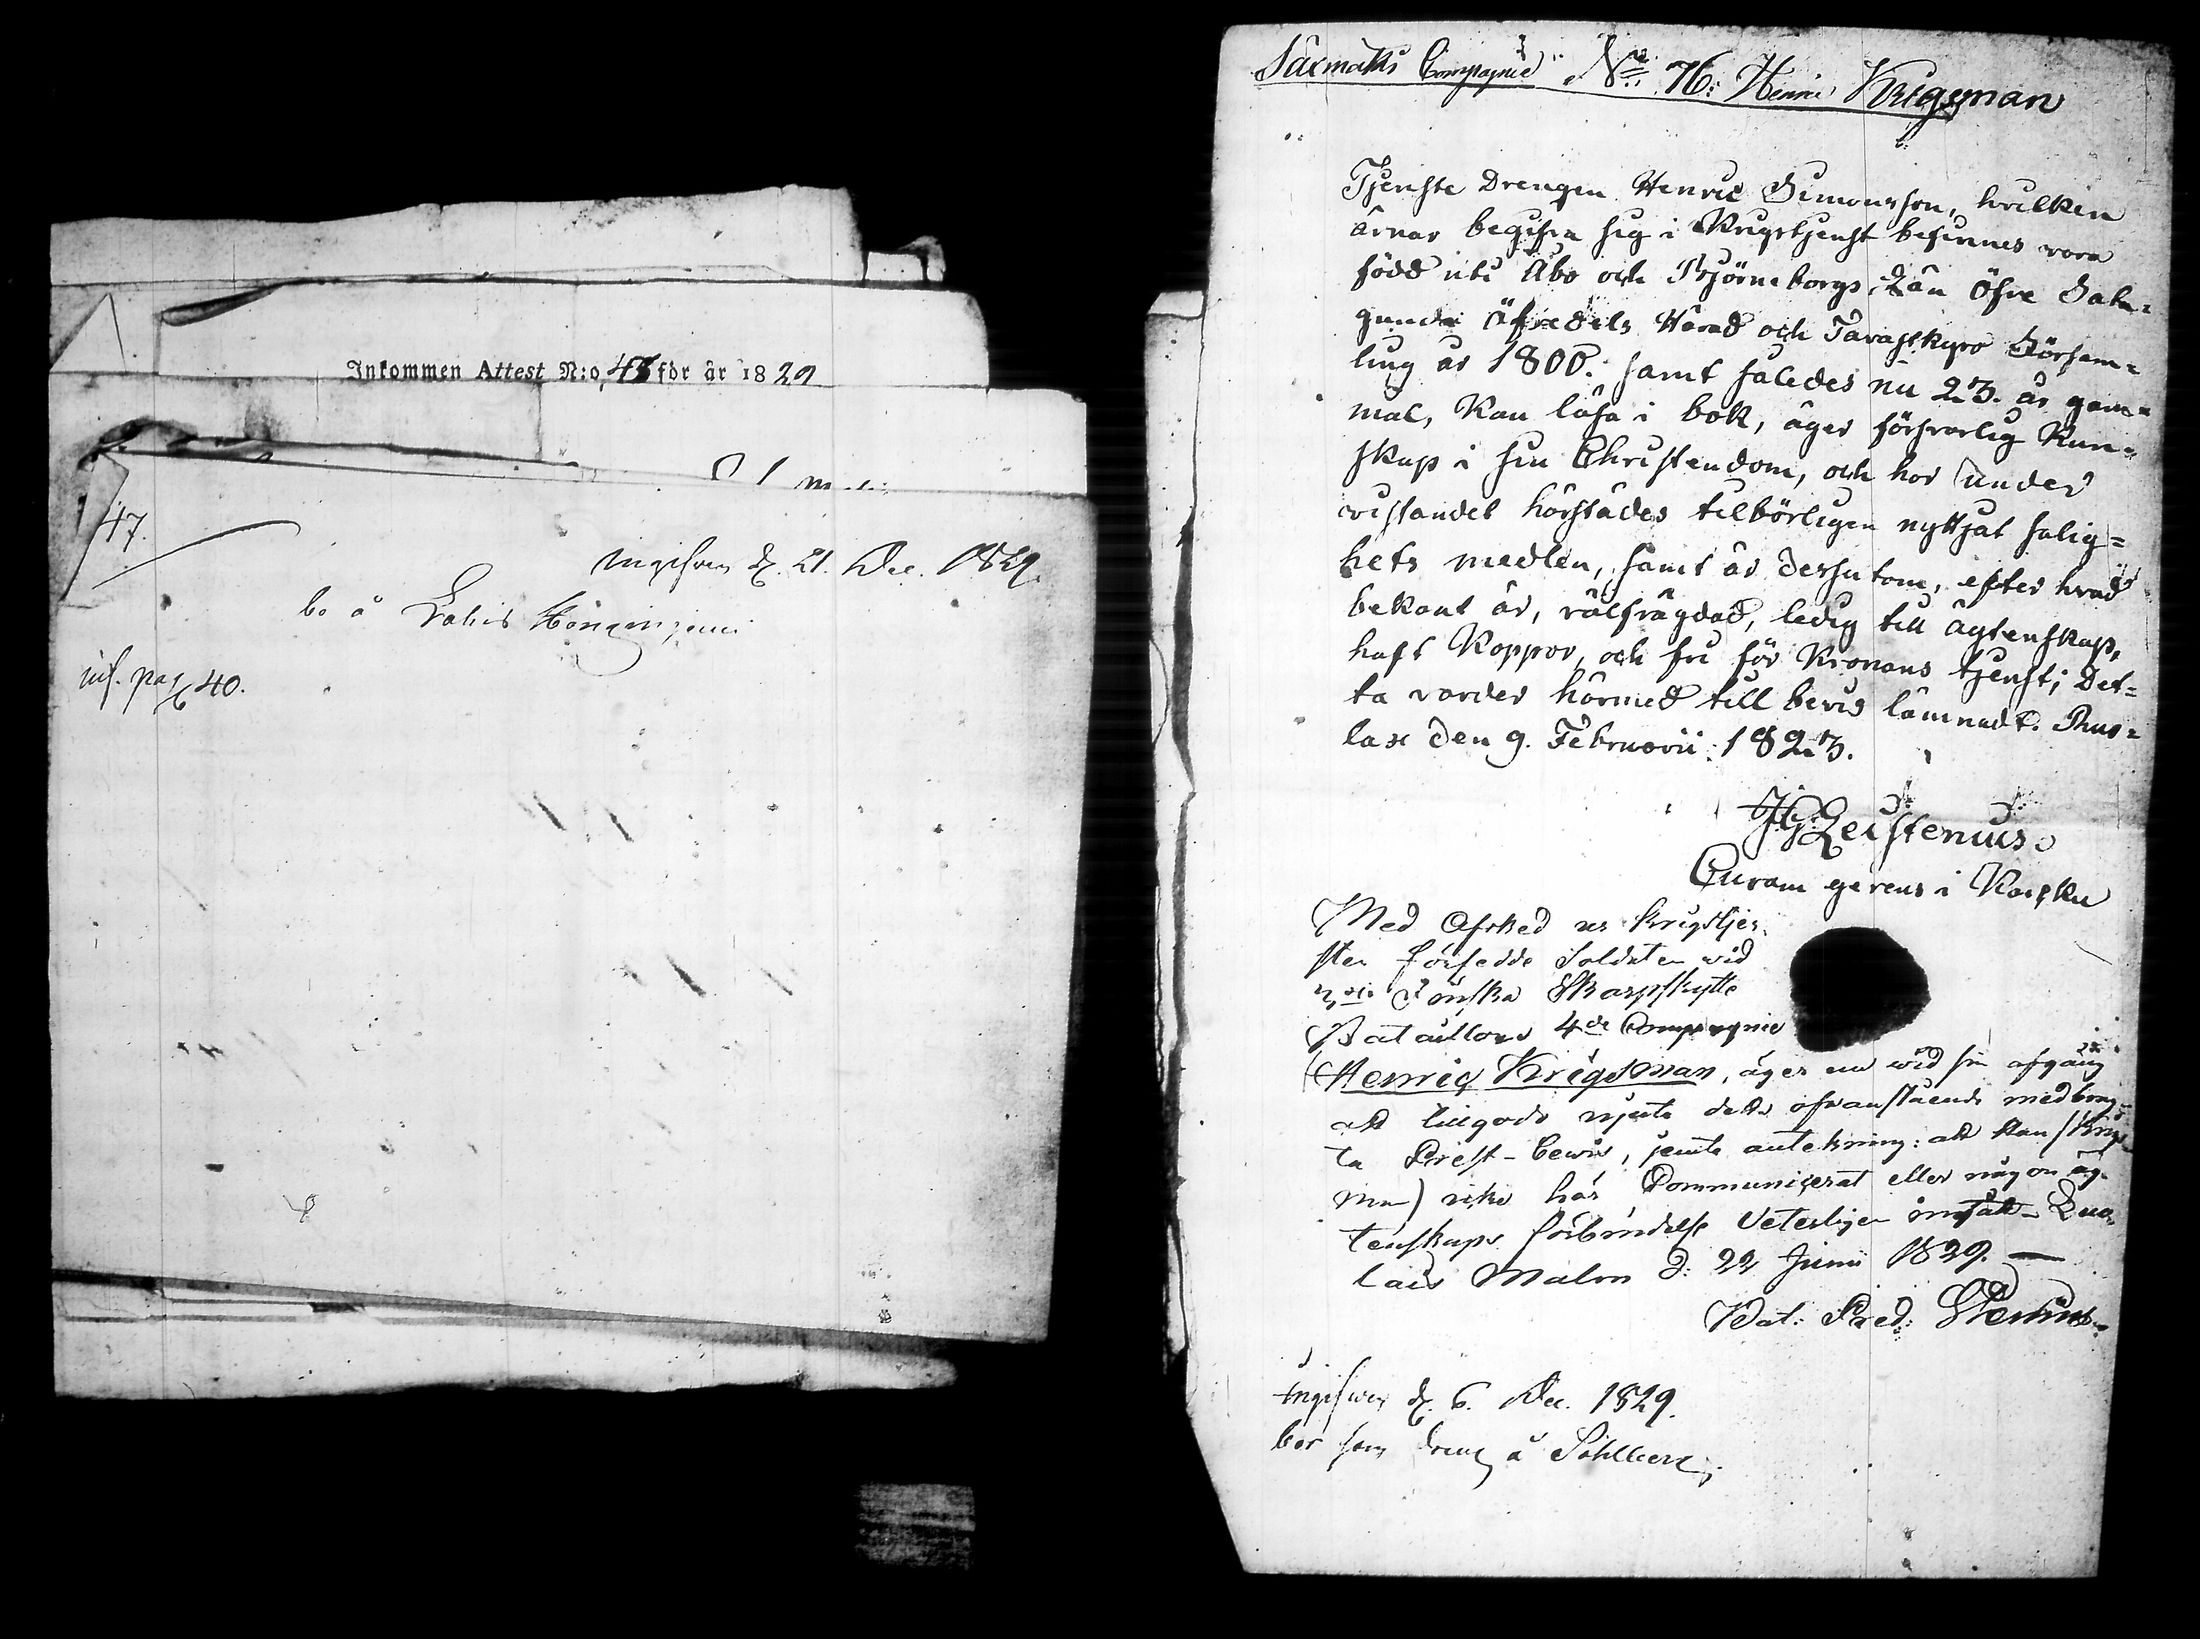 Inkommen Attest N:o 48 för år 1829
47.
ingifven d. 21. Dec. 1829.
bo å
inf. pag 40.
Compagnie No 76: Henric Krigsman
Tjenste Drengen Henric Simonsson, hvilken
ärnar begifva sig i Krigstjenst befinnes vara
född uti Åbo och Björneborgs Län Öfre Sata=
gunda Öfredels Härad och Tavastkyro Församm=
ling år 1800. samt således nu 23. år gam=
mal, Kan läsa i bok, äger försvarlig Kun=
skap i sin Christendom, och har under
vistandet härstädes tilbörligen nyttjat salig=
hets medlen, samt är dessutom, efter hvad
bekant är, välfrägdad, ledig till ägtenskap,
haft Koppor, och fri för Kronans tjenst; Det=
ta varder härmed till bevis lämnadt. Rus=
las den 9. Februarii 1823.
J.G. Leistenius.
Curam gerens i Karsku
Med Afsked ur Krigstjen
sten försedde Soldaten vid
Finska Skarpskytte
Bataillons 4de Compagnie
Henric Krigsman, äger nu wid sin afgång
att tillgodo njuta detta ofvanstående medbrag=
ta Prest-bewis, jemte antekning: att Han / Krigs
man) icke här Communicerat eller någon äg=
tenskaps förbindelse Veterligen ingått -
lais Malm d: 22 Junii 1829. —
Bat: Pred:
Ingifven d. 6. Dec. 1829.
bor som dreng å Sahlberg.